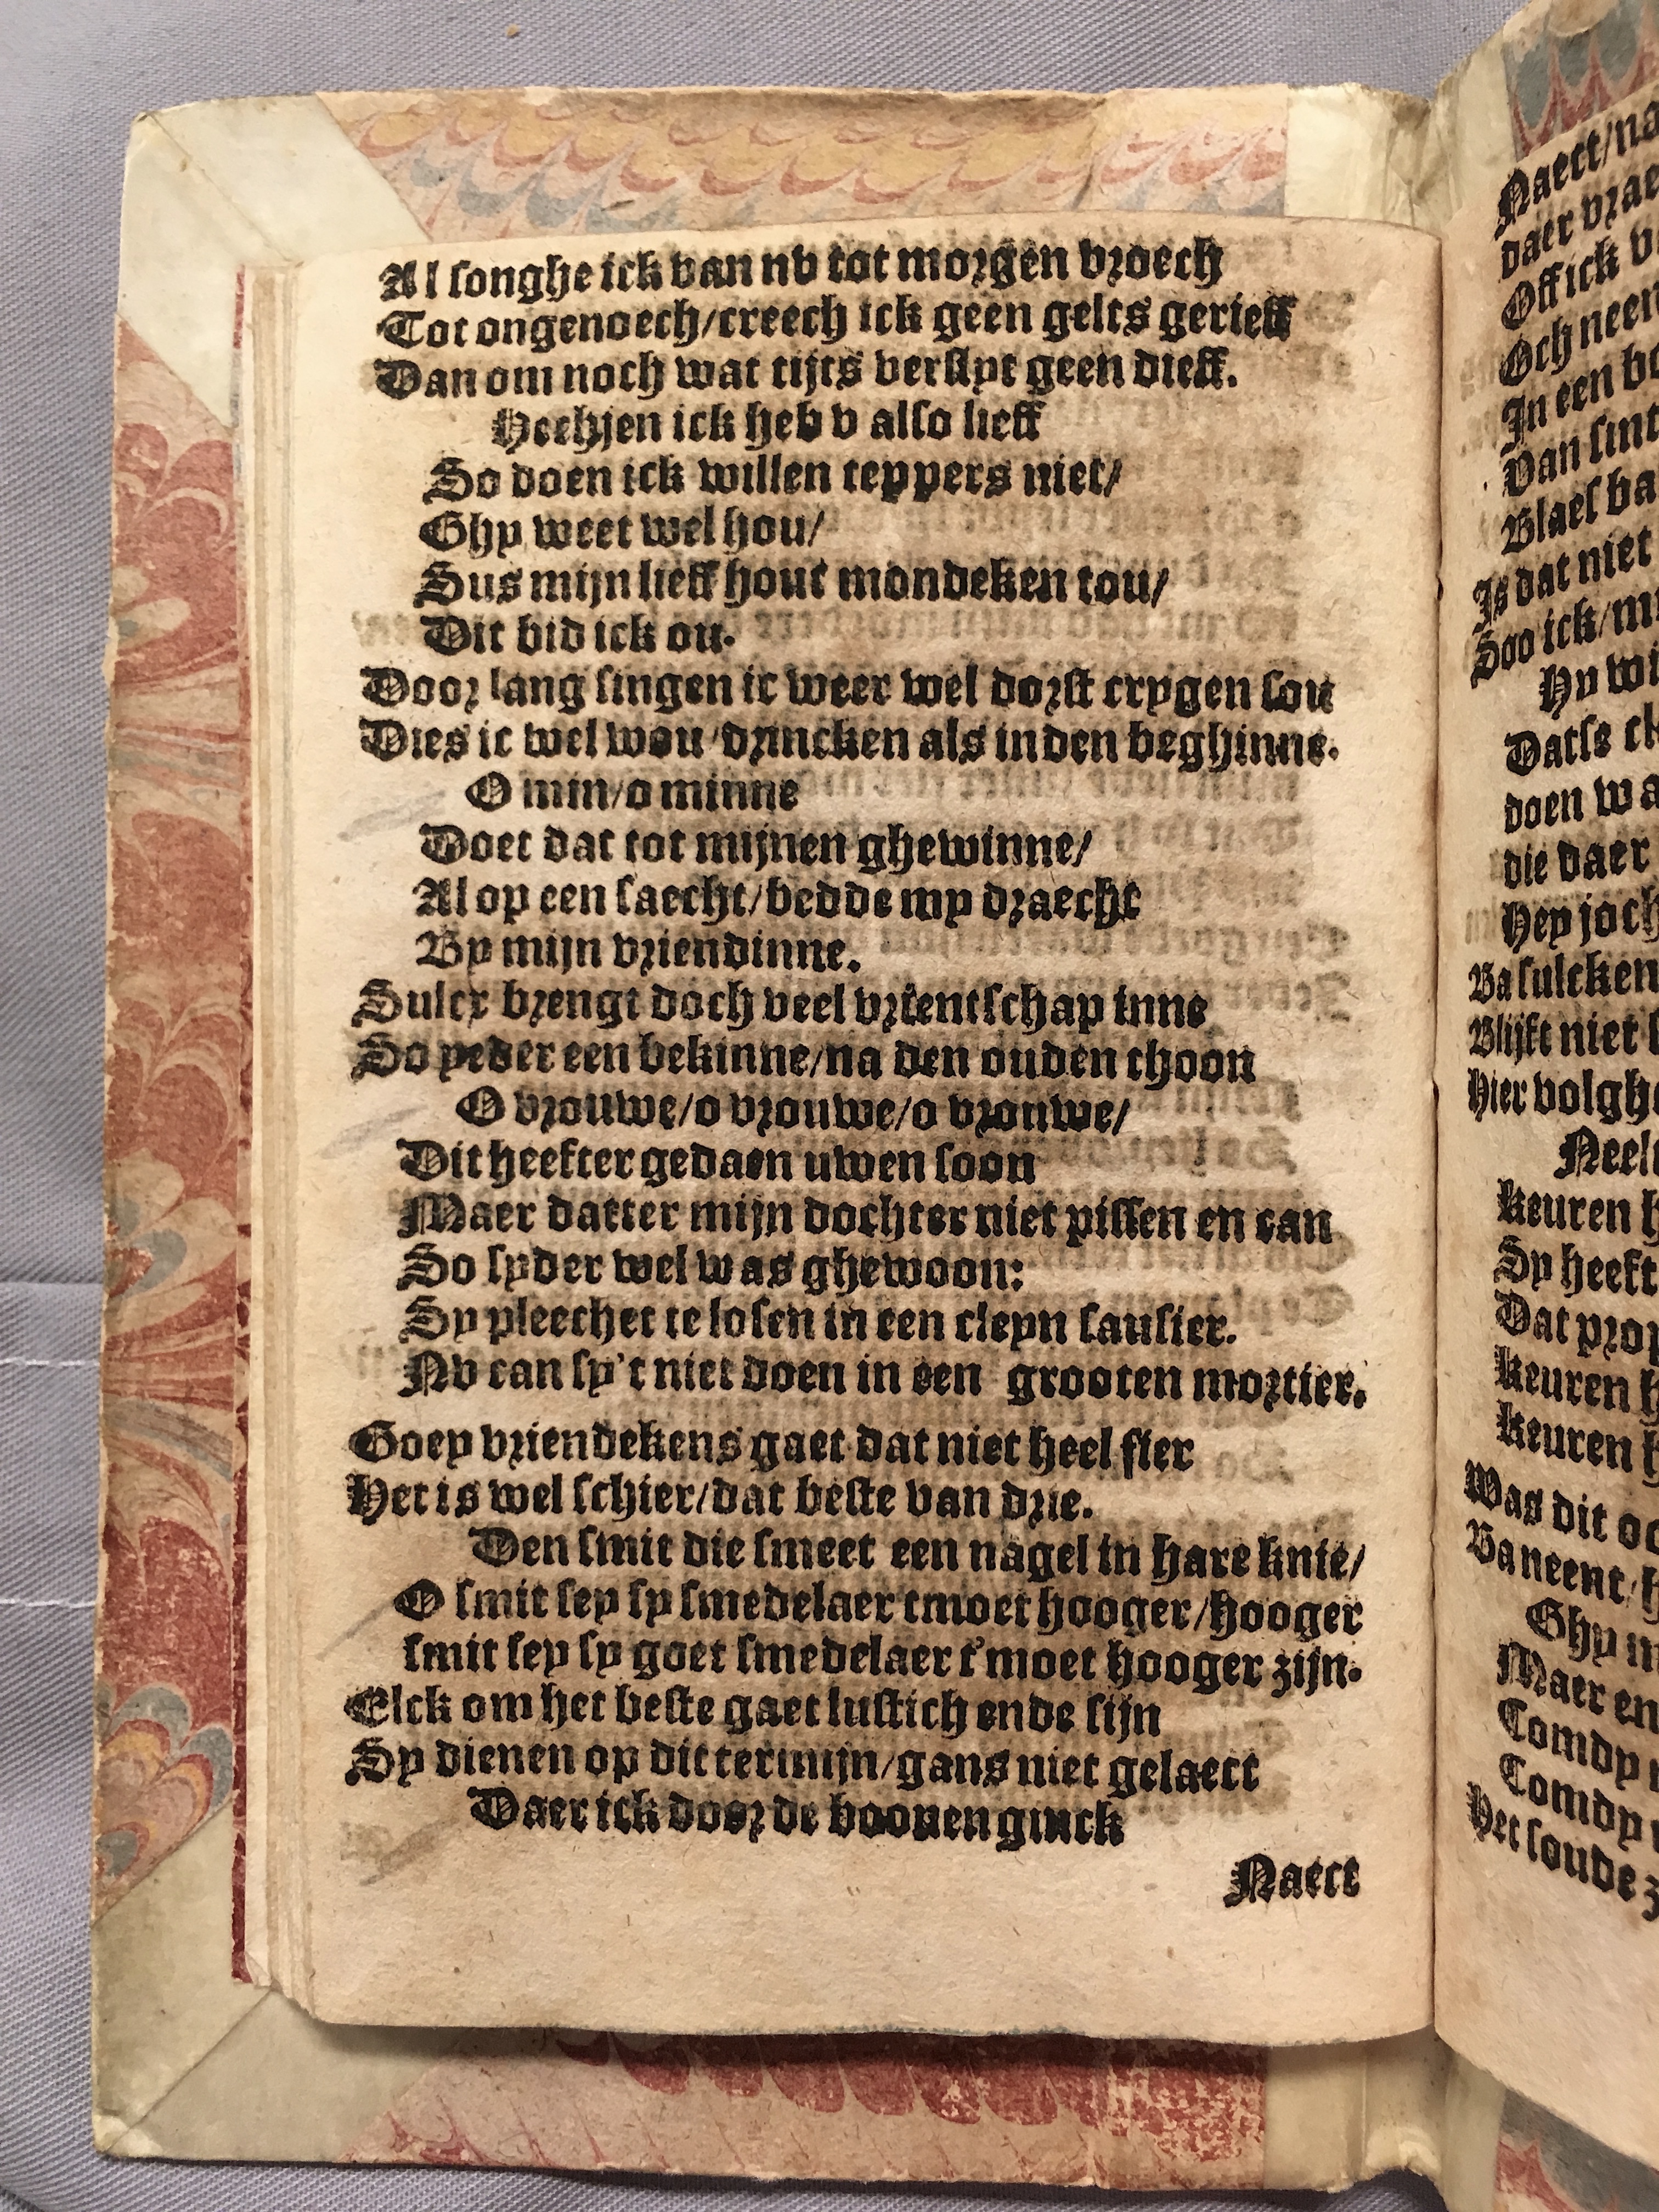 Al songhe ick van nv tot morgen vroech
Tot ongenoech/creech ick geen gelts gerieff
Dan om noch wat tijts verslijt geen dieff.
Heehjen ick heb v also lieff
So doen ick willen teppers niet/
Ghy weet wel hou/
Sus mijn lieff hout mondeken tou/
Dit bid ick ou.
Door lang singen ic weer wel dorst crygen sou
Dies ic wel wou/drincken als in den beghinne.
O min/o minne
Doet dat tot mijnen ghewinne/
Al op een saecht/bedde my draecht
By mijn vriendinne.
Sulcx brengt doch veel vrientschap inne
So yeder een bekinne/na den ouden thoon
O vrouwe/o vrouwe/o vrouwe/
Dit heefter gedaen uwen soon
Maer datter mijn dochter niet pissen en can
So syder wel was ghewoon:
Sy pleechet te losen in een cleyn sausier.
Nv can sy't niet doen in een grooten mortier.
Goey vriendekens gaet dat niet heel fier
Het is wel schier/dat beste van drie.
Den smit die smeet een nagel in hare knie/
O smit sey sy smedelaer tmoet hooger/hooger
smit sey sy goet smedelaer t'moet hooger zijn.
Elck om het beste gaet lustich ende fijn
Sy dienen op dit termijn/gans niet gelaect
Daer ick door de boonen ginck
Naect
Naect/na
daer vrae
Off ick v
Och neen
In een bo
Van sint
Blaes ba
Is dat niet
Soo ick/m
Hy wi
Datse ck
doen wa
die daer
Hey joch
Ba sulcken
Blijft niet
Hier volgh
Neel
Keuren h
Sy heeft
Dat prop
Keuren h
Keuren h
Was dit oo
Ba neent/h
Ghy m
Maer en
Comdy
Comdy
Het soude z